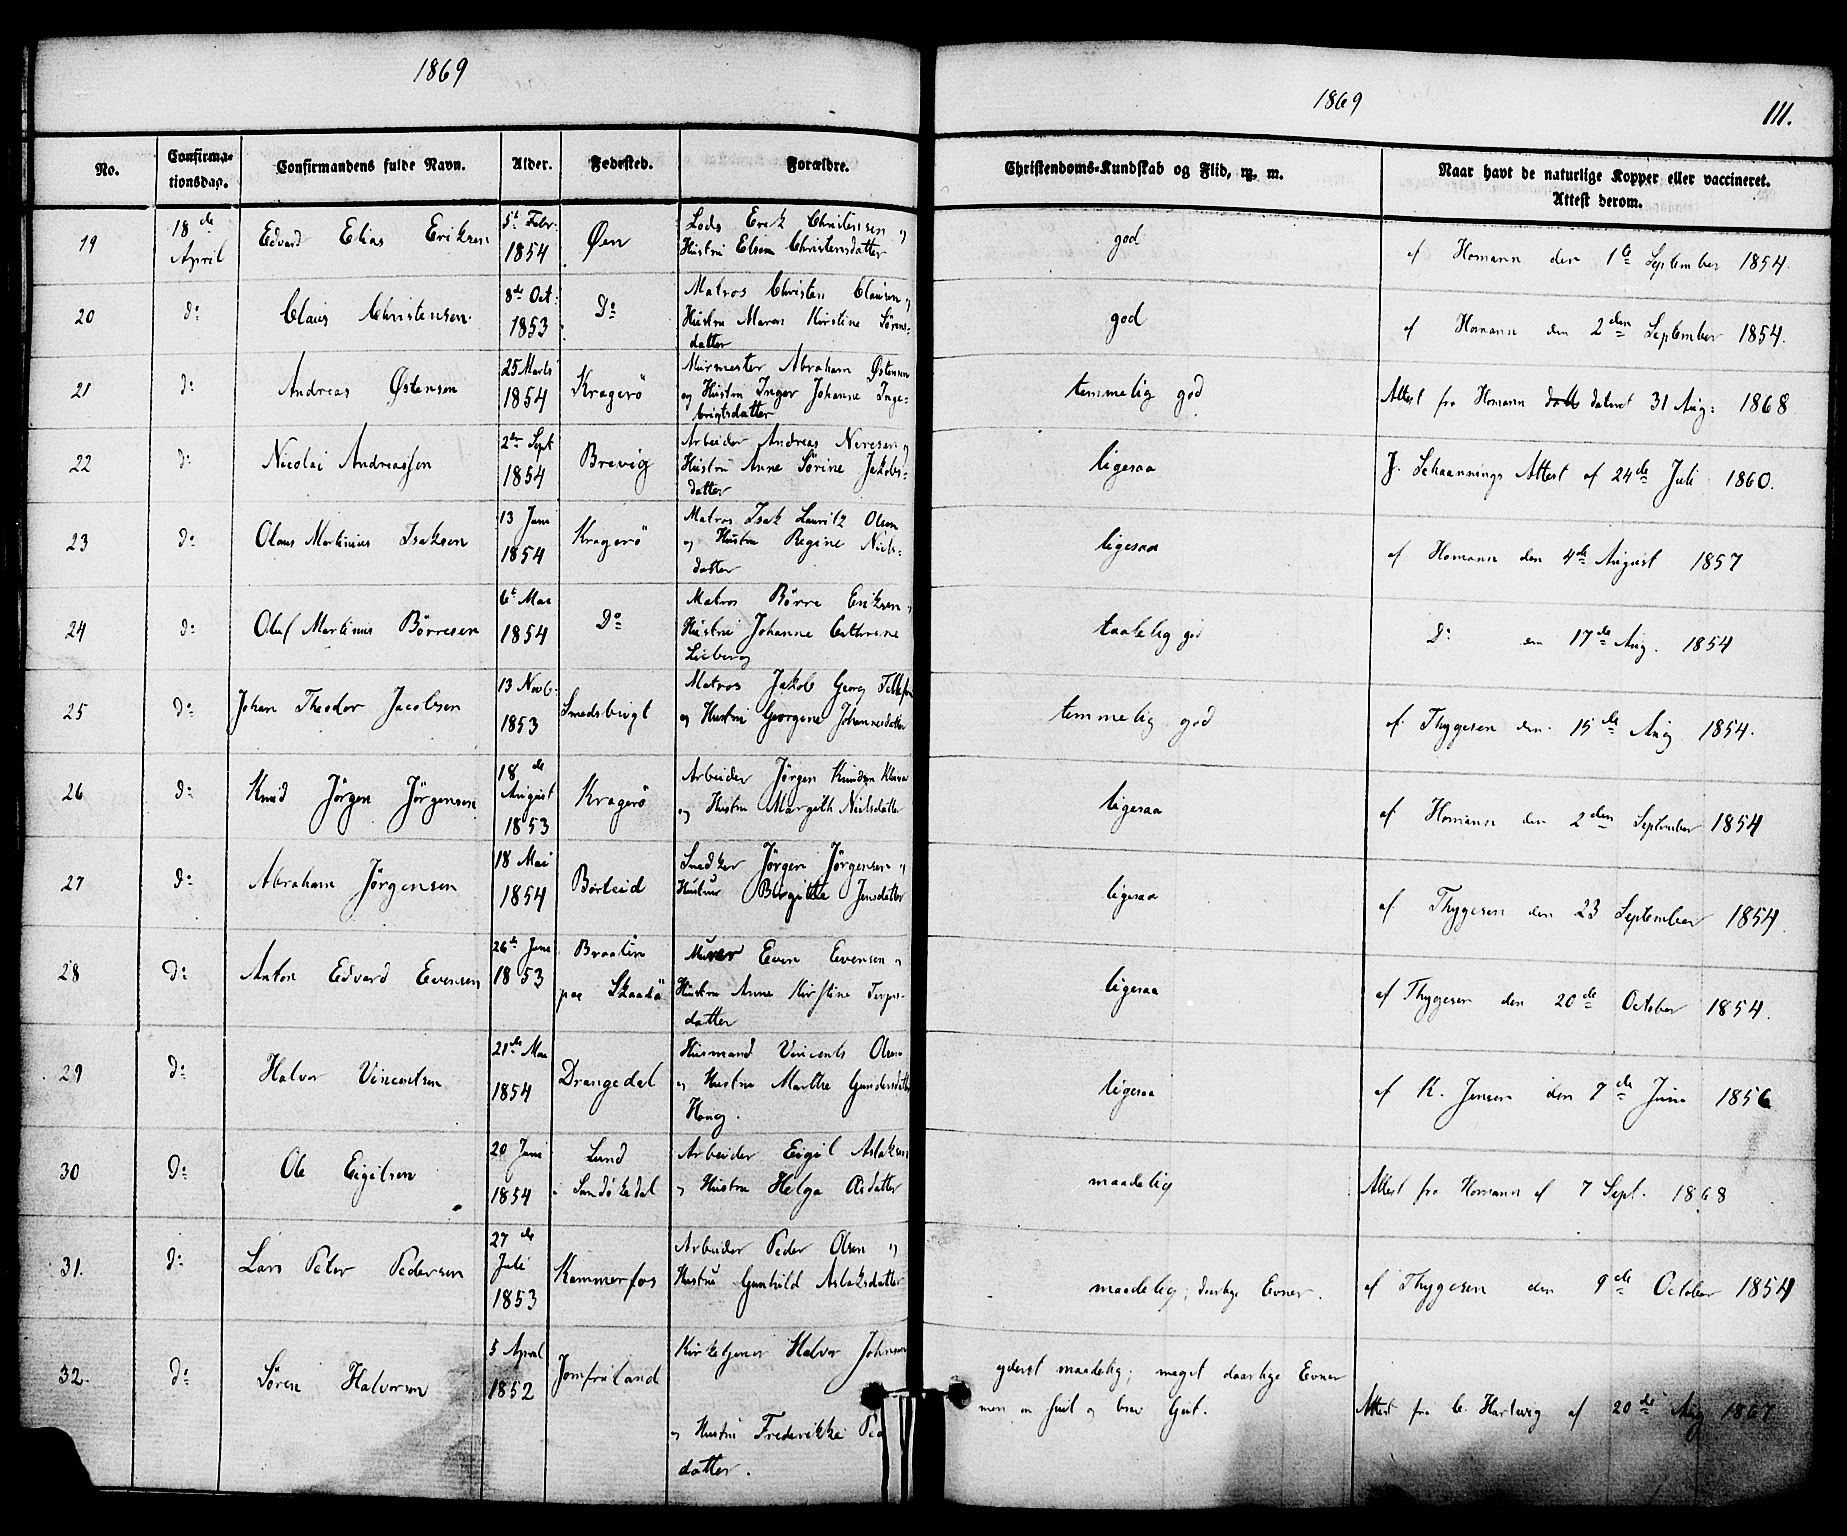 1869
No.
Confirma-
tionsdag.
Confirmandens fulde Navn.
Alder.
Fødested.
Forældre.
19
18de
April
Edvard Elias Eriksen
5t Febr.
1854
Øen
Lods Erik Christensen og
Hustru Elsine Christensdatter
20
do
Claus Christensen
8de Oct:
1853
Do
Matros Christen Clausen og
Hustru Maren Kirstine Sørens-
datter
21
do
Andreas Østensen
25 Marts
1854
Kragerö
Murmester Abraham Østensen
og Hustru Inger Johanne Inge-
brigtsdatter
22
do
Nicolai Andreassen
2den Sept
1854
Brevig
Arbeider Andreas Neresen og
Hustru Anne Sörine Jakobs-
datter
23
do
Olaus Martinius Isaksen
13 Juni
1854
Kragerö
Matros Isak Lauritz Olsen
og Hustru Regine Niels-
datter
24
do
Oluf Martinius Börresen
6t Mai
1854
Do
Matros Börre Eriksen og
Hustru Johanne Cathrine
25
do
Johan Theodor Jacobsen
13 Novb.
1853
Smedsbrigt
Matros Jakob Georg
og Hustru Georgine Johannesdatter
26
do
Knud Jörgen Jörgensen
18de
August
1853
Kragerö
Arbeider Jörgen Knudsen
og Hustru Margith Nielsdatter
27
do
Abraham Jörgensen
18 Mai
1854
Börteid
Snedker Jörgen Jörgensen og
Hustru Birgitte Jensdatter
28
do
Anton Edvard Evensen
26de
1853
Braaten
paa Skaadö
Murer Even Evensen og
Hustru Anne Kirstine Terjes-
datter
29
do
Halvor Vincentsen
21de Mai
1854
Drangedal
Husmand Vincents Olsen
og Hustru Marthe Gundersdatter
30
do
Ole Eigilsen
20 Juni
1854
Lund
i Sandökedal
Arbeider Eigil Aslaksen
og Hustru Helga
31.
do
Lars Peter Pedersen
27de
Juli
1853
Kammerfos
Arbeider Peder Olsen og
Hustru Gunhild Aslaksdatter
32.
do
Sören Halvorsen
5 April
1852
Jomfruland
Kirketjener Halvor Johnsen
og Hustru Frederikke
datter.
1869
111.
Christendoms-Kundskab og Flid, m. m.
Naar havt de naturlige Kopper eller vaccineret.
Attest derom.
god
af Homann den 1te September 1854.
god
af Homann den 2den September 1854.
temmelig god
Attest fra Homann dateret 31 Aug: 1868
ligesaa
J. Schaannings Attest af 24de Juli 1860.
ligesaa
af Homann den 4de August 1857
taalelig god
Do den 17de Aug. 1854
temmelig god
af Thygesen den 15de Aug 1854.
ligesaa
af Homann den 2den September 1854
ligesaa
af Thygesen den 23 September 1854
ligesaa
af Thygesen den 20de October 1854.
ligesaa
af K. Jensen den 7de Juni 1856
maadelig
Attest fra Homann af 7 Sept. 1868
maadelig; daarlige Evner.
af Thygesen den 9de October 1854
yderst maadelig; meget daarlige Evner
men en snil og brav Gut.
Attest fra C. Hartwig af 20de Aug 1867